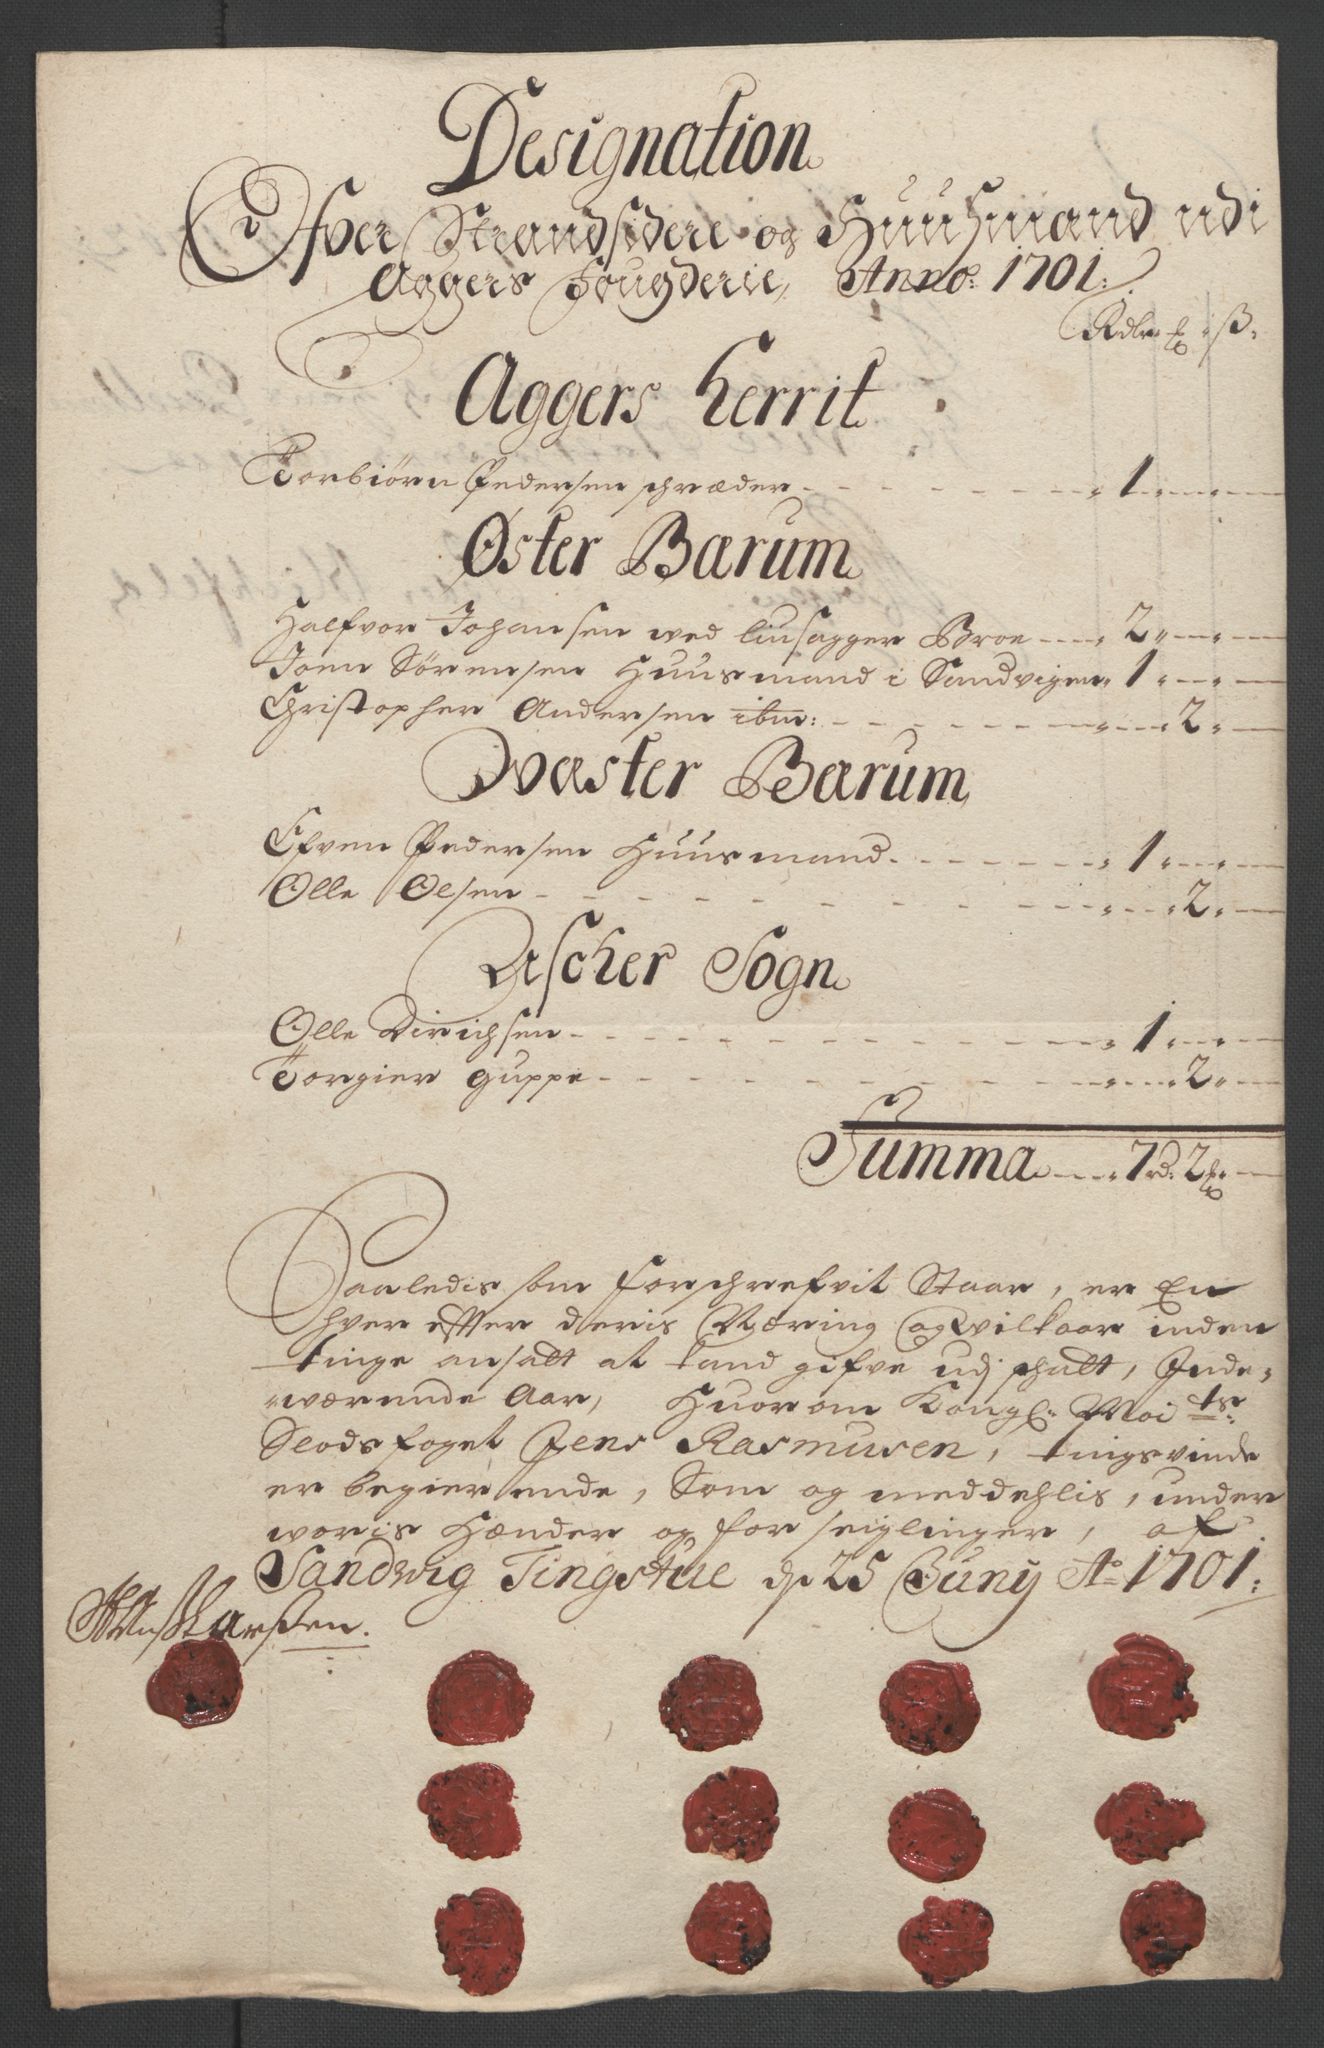 Designation
Ofver Strandsidere og Huusmænd udi
Aggers Fougderie, Anno: 1701:
Rdlr ß
Aggers Herrit
Torbiørn Pedersen schræder 1
Øster Bærum
Halfvor Johansen wed liusagger Broe 2
Joen Sørensen Huusmand i Sandvigen 1
Christopher Andersen ibm: 2
Wæster Bærum
Efven Pedersen Huusmand 1
Olle Olsen 2
Ascher Sogn
Olle Dirichsen 1
Torgier guppe 2
Summa 7 rd. 2
Saaledis som forschrefvit Staar, er En
hver effter deris Næring og Vilkaar inden
tinge ansatt at kand gifve udj schatt, Inde-
wærende Aar, Huorom Kongl: Mai ts:
Slodsfoget Jens Rasmusen, tingsvinde
er begierende, Som og meddehlis, under
woris Hænder og forseiglinger, af
Sandwig Tingstue d 25 Juny Ao 1701: